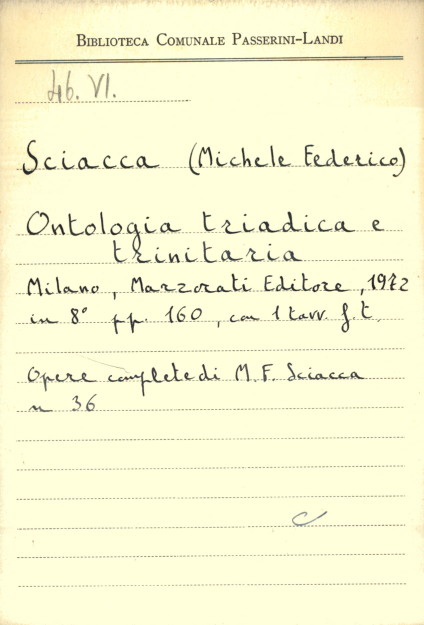 BIBLIOTECA COMUNALE PASSERINI-LANDI
46. VI.
Sciacca (Michele Federico)
Ontologia triadica e
trinitaria
Milano, Marzorati Editore, 1972
in 8° pp. 160, con 1 tavv. f. t.
Opere complete di M. F. Sciacca
n 36